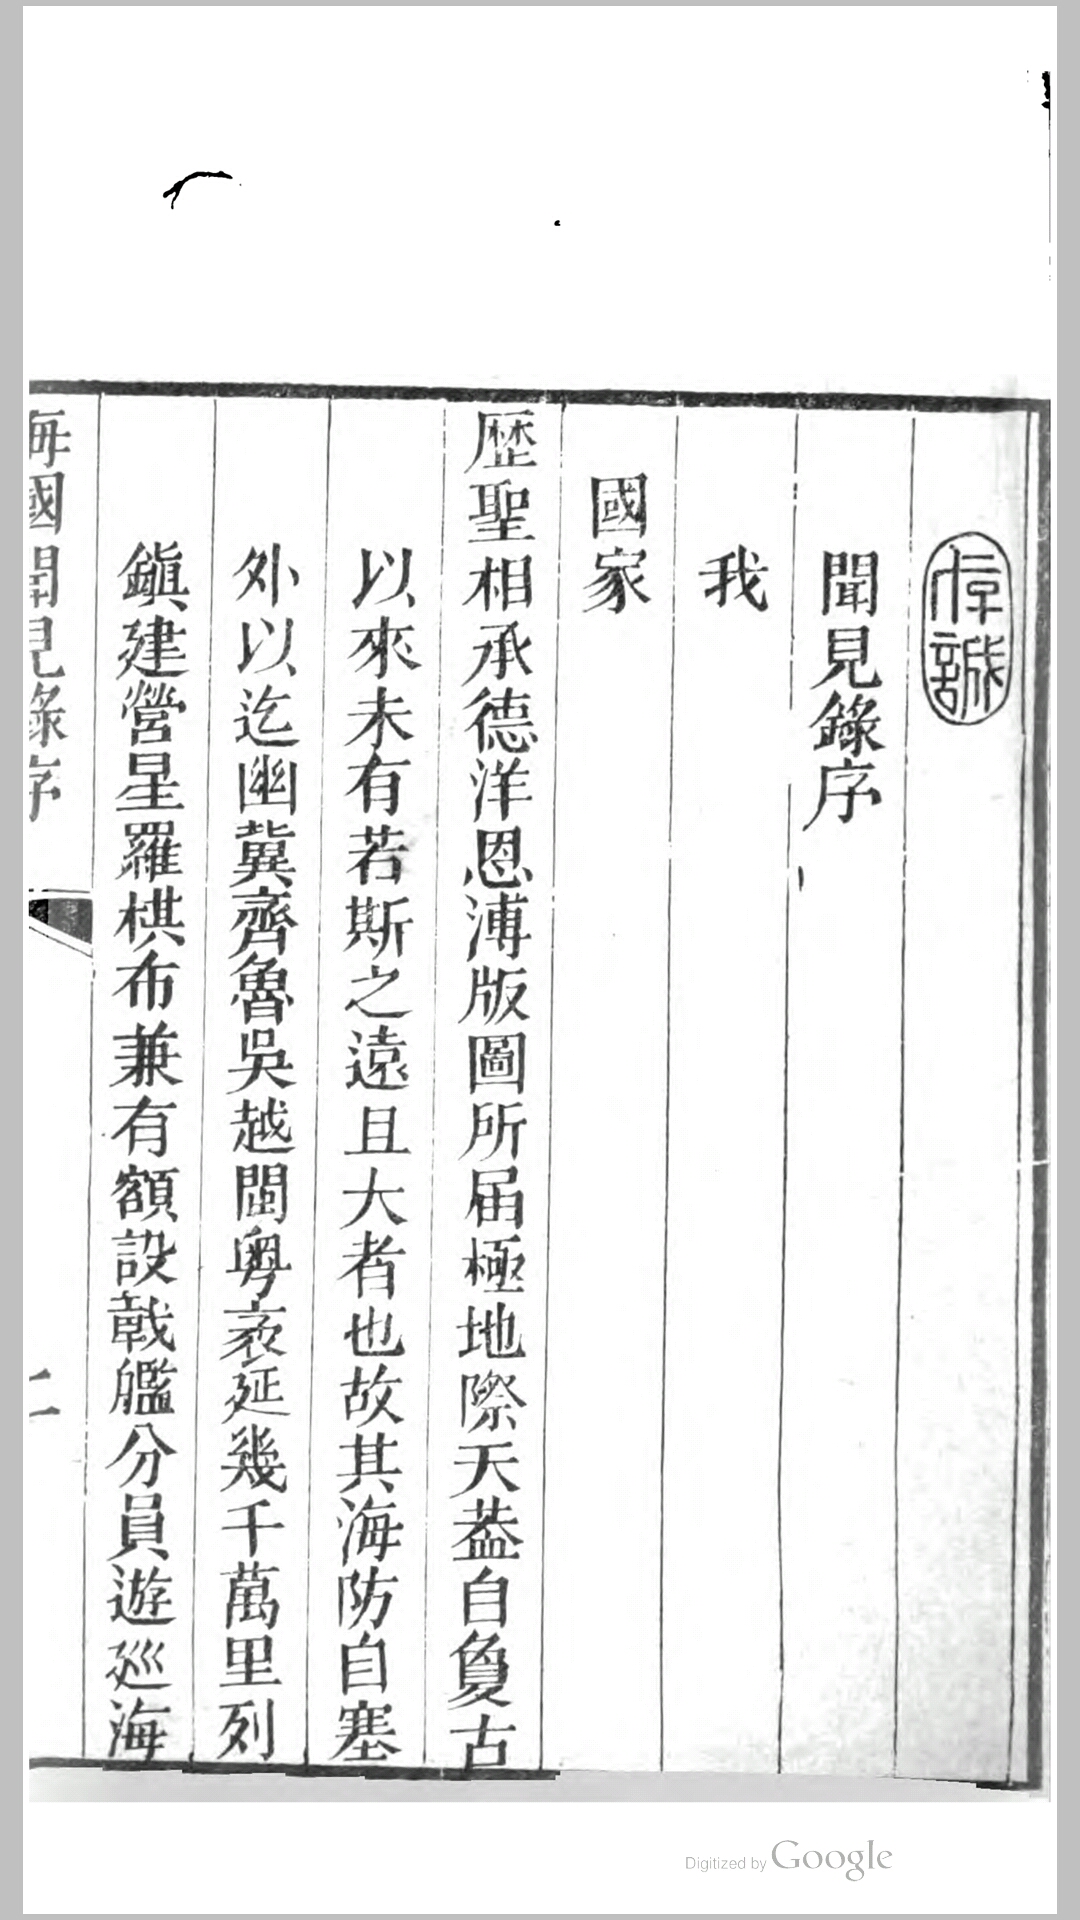 存誠
聞見錄序
我
國家
歷聖相承德洋恩溥版圖所届極地際天葢自夐古
以來未有若斯之遠且大者也故其海防自塞
外以迄幽冀齊魯吳越閩粤袤延幾千萬里列
鎭建營星羅棋布兼有額設戰艦分員遊巡海
海國聞見錄序
Digitized by Google